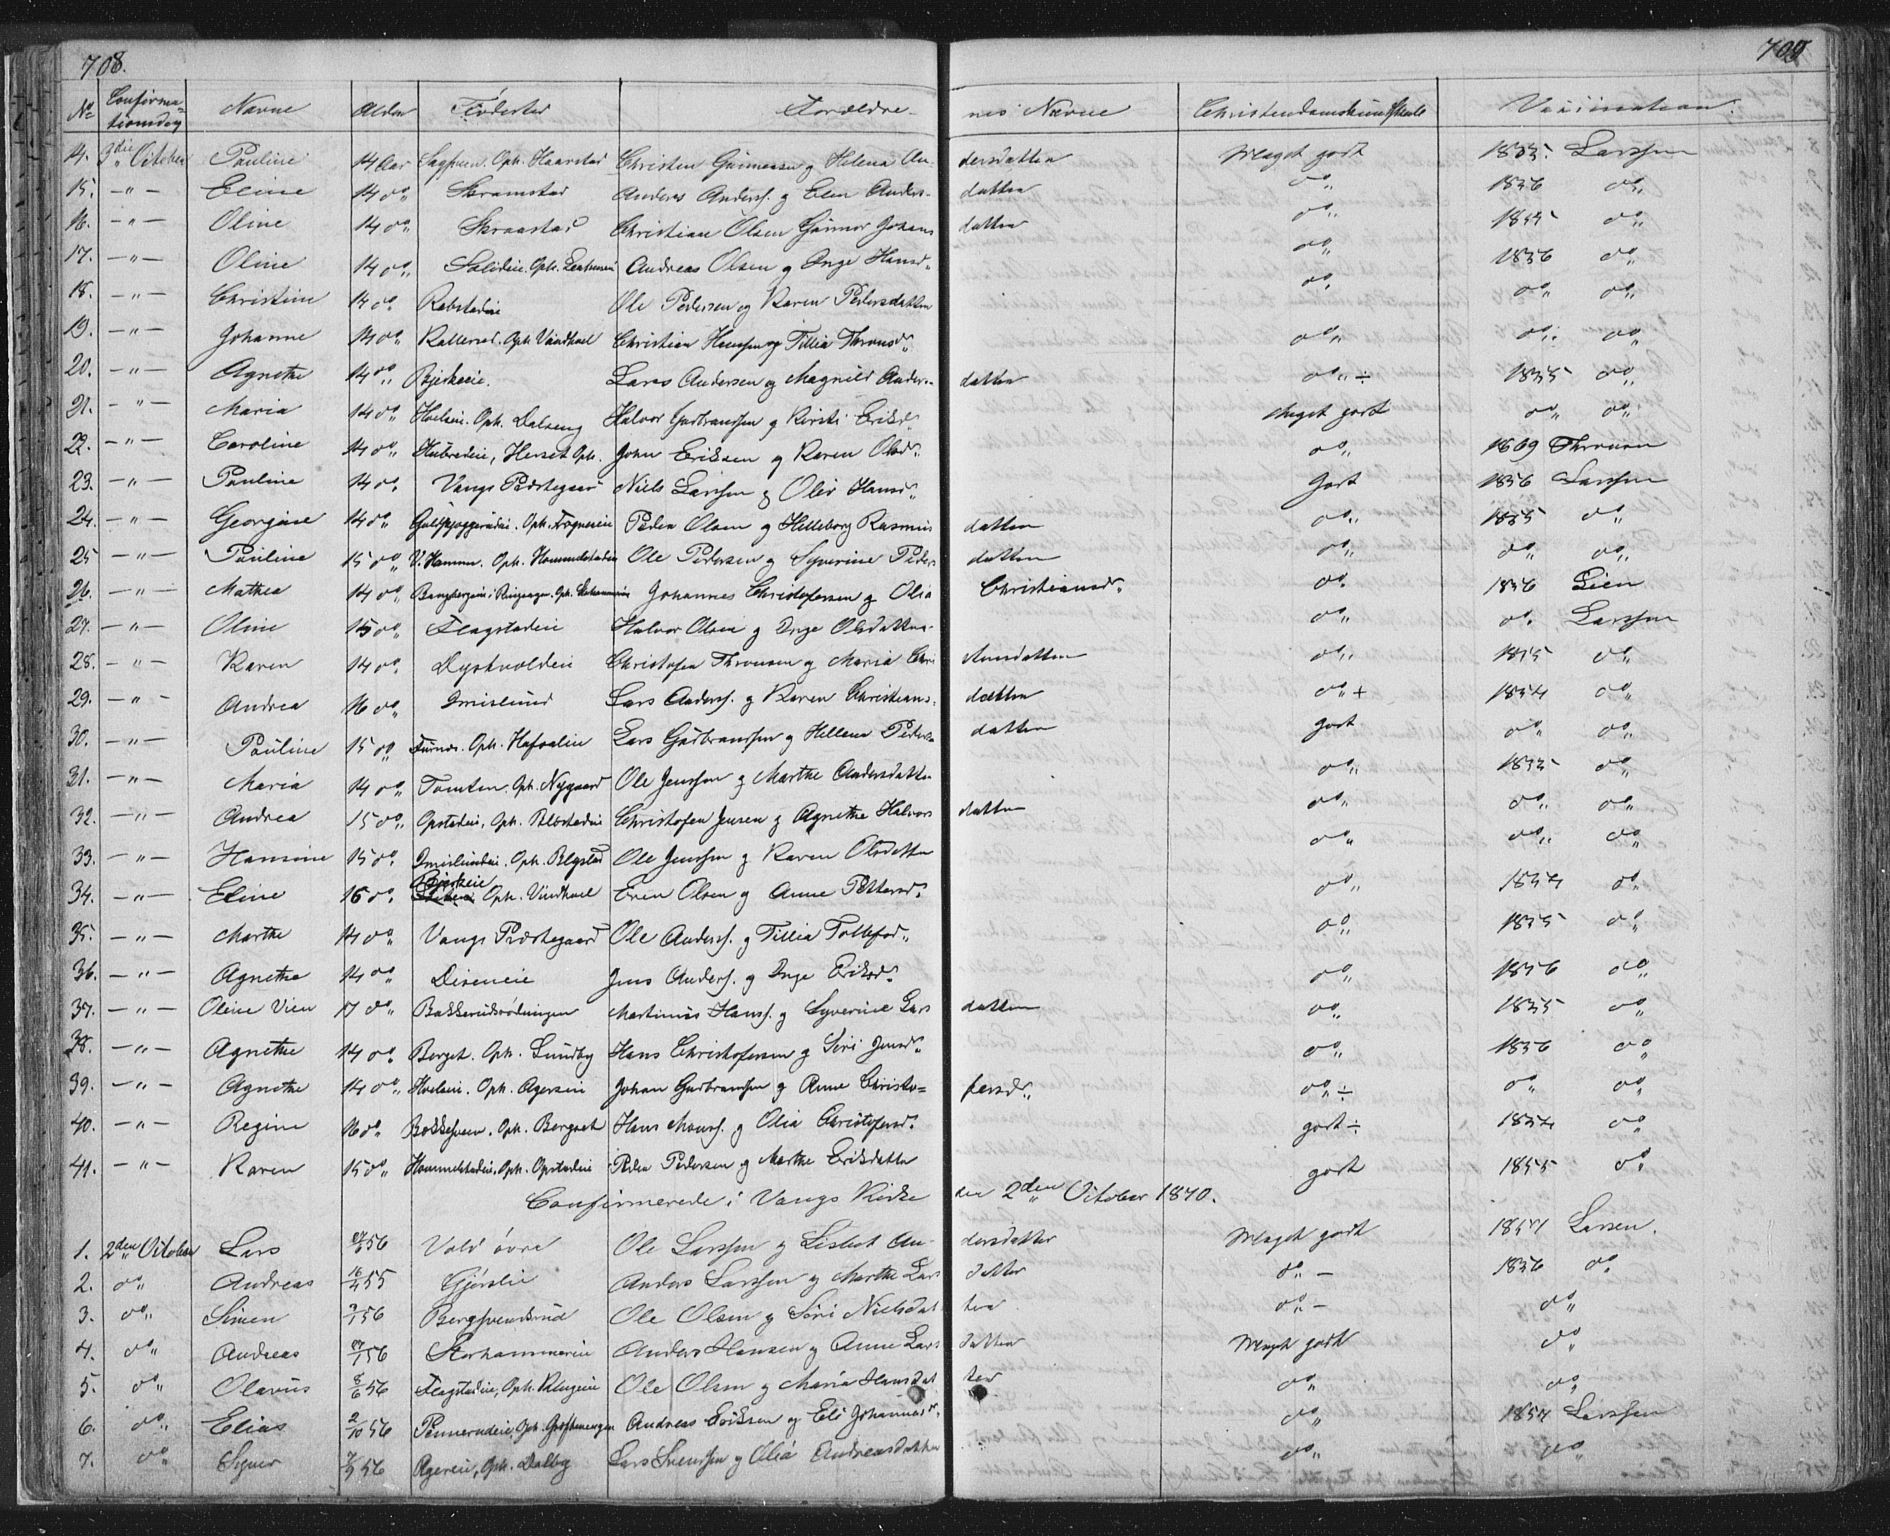 708. 709
No Confirmationsdag Navne Alder Fødested Forældrenes Navne Christendomskundskab Vaccination.
14. 3die October Pauline 14 Aar Sagstuen. Oph. Haarstad Christen Gunnersen og Helena Andersdatter Meget godt 1855. Larssen
15. — " — Eline 14 do Skramstad Anders Anderss. og Elen Andersdatter do 1856 do
16. — " — Oline 14 do Skraastad Christian Olsen Gunnor Johansdatter do 1855 do
17. — " — Oline 14 do Andreas Olsen og Inge Hansd. do 1856 do
18. — " — Christine 14 do Rabstadeie Ole Pedersen og Karen Pedersdatter do do do
19. — " — Johanne 14 do Oph. Vindhuel Christian Hanssen og Tillia Thronsd. do do do
20. — " — Agnethe 14 do Bjerkeeie. Lars Andersen og Magnild Andersdatter do ÷ 1855 do
21. — " — Maria 14 do Hoelseie. Oph. Dalseng Halvor Gudbranssen og Kirsti Eriksd. Meget godt do do
22. — " — Caroline 14 do Hubredeie, Herset Oph. John Eriksen og Karen Olsd. do 1869 Thronsen
23. — " — Pauline 14 do Vangs Præstegaard Niels Larssen og Olea Hansd. Godt 1856 Larssen
24. — " — Georgine 14 do Oph. Fognereie Peder Olsen og Helleborg Rasmusdatter do 1855 do
25 — " — Pauline 15 do V. Hammer. Oph. Hommelstadeie Ole Pedersen og Syverine Pedersdatter do do do
26. — " — Mathea 14 do Bangbergeie i Ringsager. Oph. Johannes Christofersen og Olia Christiansd. do 1856 Lien
27. — " — Oline 15 do Flagstadeie Halvor Olsen og Inge Olsdatter do do Larssen
28. — " — Karen 14 do Dystvoldeie Christofer Thronsen og Maria Christiansdatter do 1855 do
29. — " — Andrea 16 do Imislund Lars Anderss. og Karen Christiansdatter do + 1854 do
30. — " — Pauline 15 do Furnæs. Oph. Hafsaleie Lars Gudbranssen og Hellene Pedersdatter godt do do
31. — " — Maria 14 do Tomter. Oph. Nygaard Ole Jenssen og Marthe Andersdatter do 1855 do
32. — " — Andrea 15 do Opstadeie, Oph. Blæstadeie Christofer Jensen og Agnethe Halvorsdatter do do do
33. — " — Hansine 15 do Imislundeie. Oph. Blystad Ole Jenssen og Karen Olsdatter do do do
34. — " — Eline 15 do Bjerkeie Oph. Vindhuel Even Olsen og Anne Pettersd. do 1854 do
35. — " — Marthe 14 do Vangs Præstegaard Ole Anderss. og Tillia Tollefsd. do 1855 do
36. — " — Agnethe 14 do Diseneie Jens Anderss. og Inge Eriksd. do 1856 do
37. — " — Oline Vien 17 do Bakkerudsrødningen Martinius Hanss. og Syverine Larsdatter do 1855 do
38. — " — Agnethe 14 do Berget. Oph. Sundby Hans Christofersen og Siri Jensd. do 1856 do
39. — " — Agnethe 14 do Hoelseie. Oph. Agerseie Johan Gudbranssen og Anne Christofersd. do ÷ do do
40. — " — Regine 16 do Bekkesveen. Oph. Bergset Hans Monss. og Olia Christofersd. godt ÷ 1854 do
41. — " — Karen 15 do Hommelstadeie, Oph. Opstadeie Peder Pedersen og Marthe Eriksdatter godt 1855 do
Confirmerede i Vangs Kirke den 2den October 1870.
1. 2den October Lars 56 Vold øvre Ole Larssen og Lisbet Andersdatter Meget godt 1857 Larsen.
2. do Andreas 16/4 55 Gjørslie Anders Larssen og Marthe Larsdatter do – 1856 do
3. do Simen 3/1 56 Bergsvendsrud Ole Olsen og Siri Nielsdatter do – do
4. do Andreas 56 Storhammereie Anders Hansen og Anne Larsdatter Meget godt do
5. do Olavus 8/6 56 Flagstadeie, Oph. Klugeie Ole Olsen og Maria Hansdatter do do
6. do Elias 2/10 56 Pennerudeie, Oph. Andreas Eriksen og Eli Johannesd. do 1857 Larssen
7. do Syver 56 Agereie, Oph. Dalby Lars Svenssen og Olia Andreasdatter do do